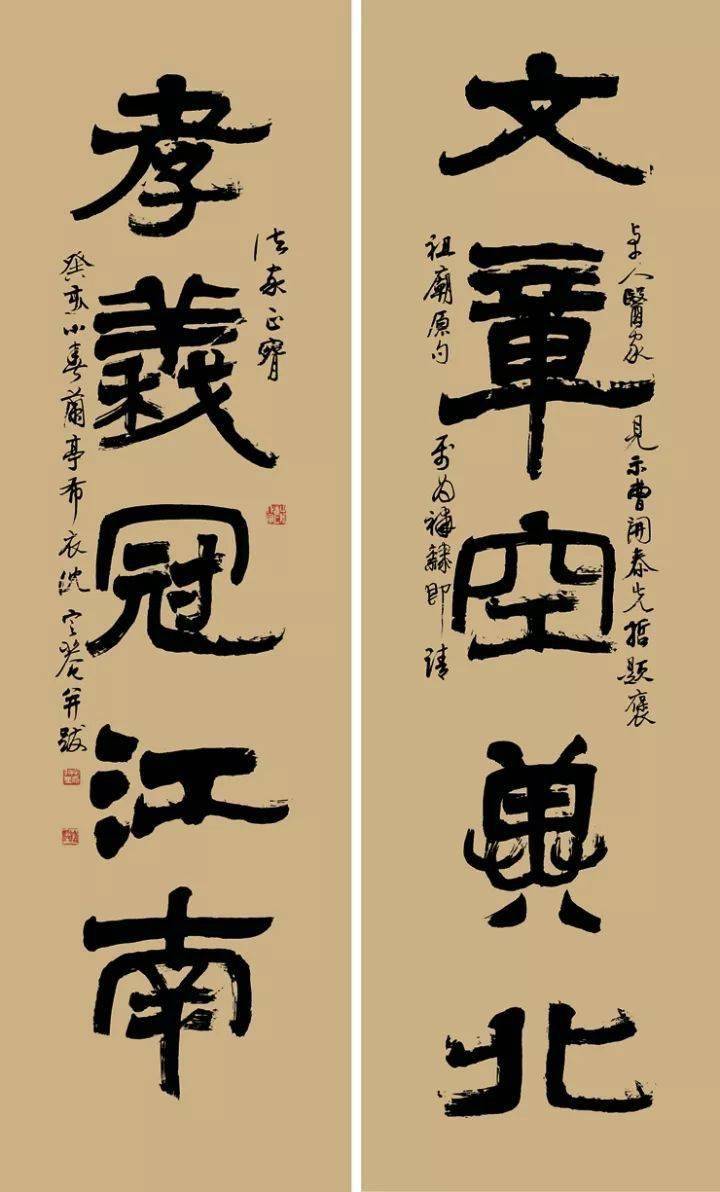 文章空冀北
卓人醫家 見示曹開泰先哲題褒
祖廟原句 為補隸即請
孝義冠江南
法家正
癸亥小春蘭亭布衣沈定庵并跋